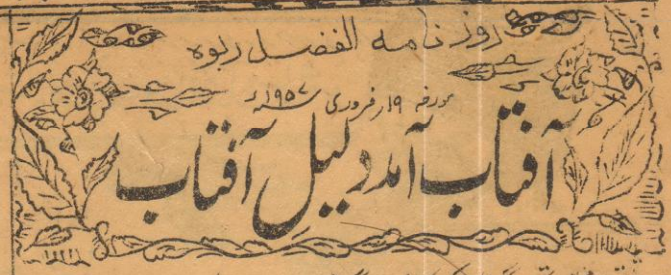 روزنامه الفضل ربوه
مورخہ ۱۹ر فروری ۱۹۵۷ء
آفتاب آمد دلیل آفتاب